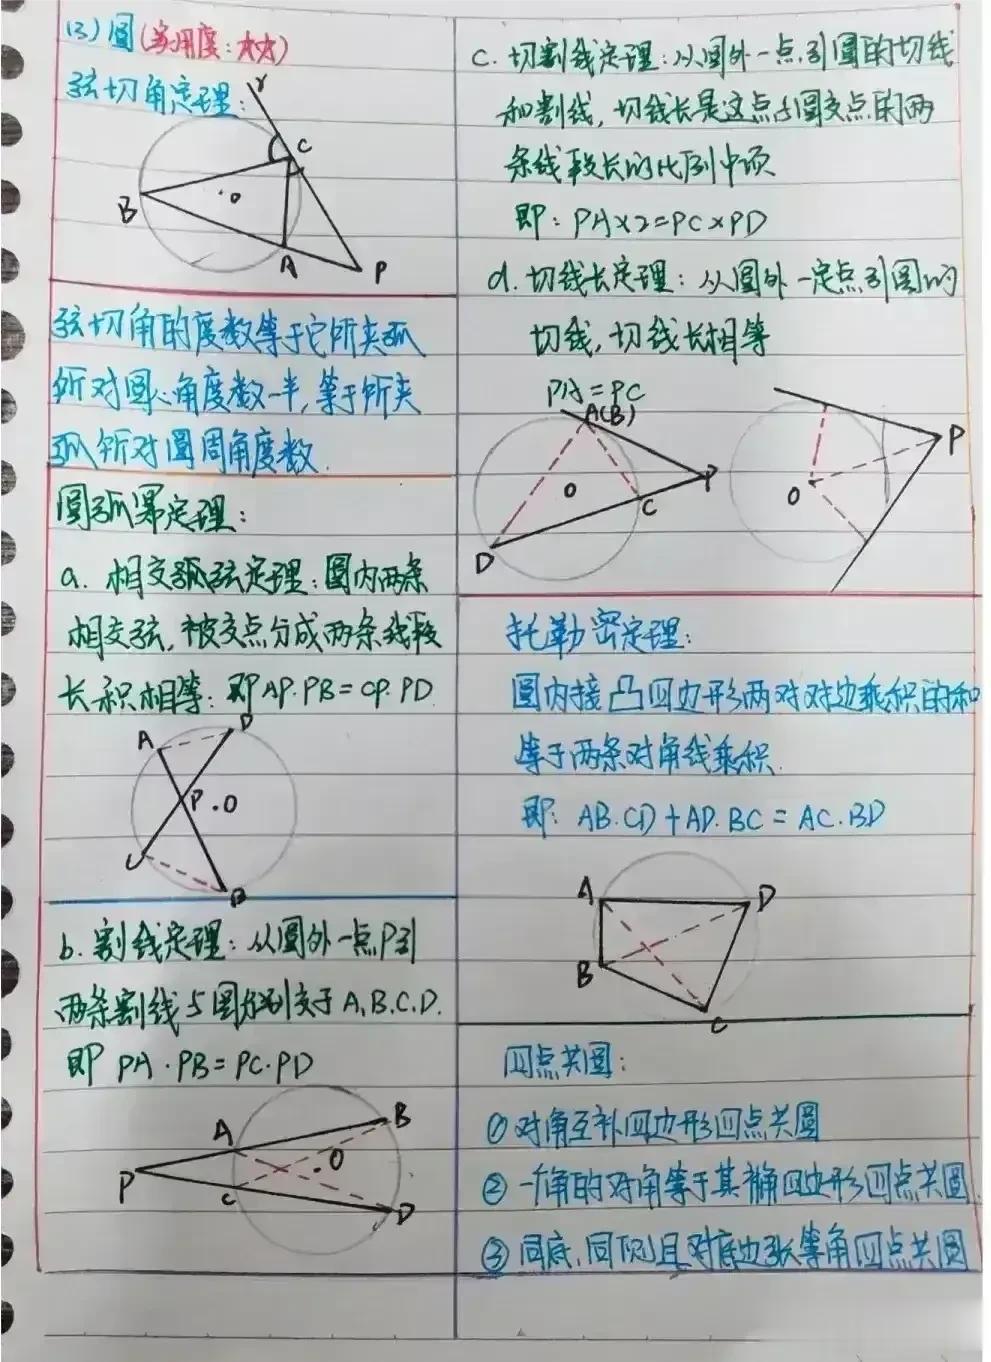 (3) 圆(实用度:大大)
弦切角定理:
Y
C
B
O
A
P
弦切角的度数等于它所夹弧
所对圆心角度数一半,等于所夹
弧所对圆周角度数.
圆弧幂定理:
a. 相交弧弦定理:圆内两条
相交弦,被交点分成两条线段
长积相等:即AP·PB=CP·PD
A
D
P
O
C
B
b. 割线定理:从圆外一点P引
两条割线与圆分别交于A,B.C.D.
即 PA·PB=PC·PD
A
B
P
O
C
D
c. 切割线定理:从圆外一点引圆的切线
和割线,切线长是这点与圆交点的两
条线段长的比例中项
即:PA×2=PC×PD
d. 切线长定理:从圆外一定点引圆的
切线,切线长相等
PA=PC
A(B)
P
O
C
D
P
O
托勒密定理:
圆内接凸四边形两对对边乘积的和
等于两条对角线乘积.
即: AB·CD+AD·BC=AC·BD
A
D
B
C
四点共圆:
①对角互补四边形四点共圆
②一角的对角等于其补角四边形四点共圆
③同底,同侧且对底边张等角四点共圆